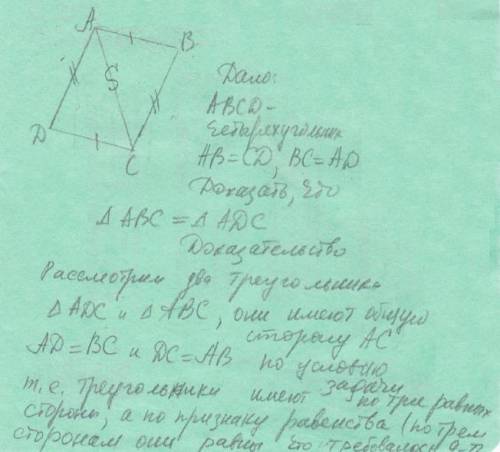 A
B
S
D
C
Дано:
ABCD-
четырёхугольник
AB=CD, BC=AD
Доказать, что
Δ ABC = Δ ADC
Доказательство
Рассмотрим два треугольника
Δ ADC и Δ ABC, они имеют общую
сторону AC
AD=BC и DC=AB по условию
задачи
т.е. треугольники имеют по три равных
стороны, а по признаку равенства (по трем
сторонам они равны что требовалось